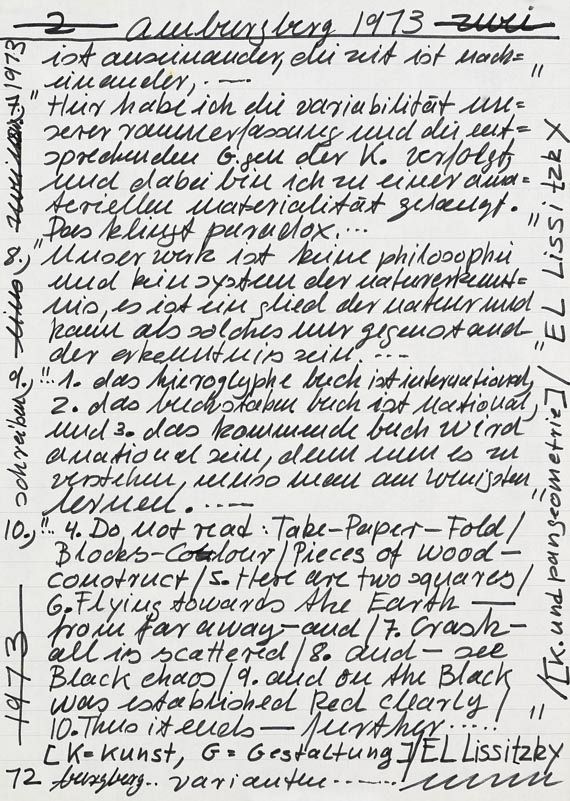 2 amburgberg 1973 zwei
ist auseinander, die zeit ist nach=
einander, . —. "
"Hier habe ich die variabilität un=
serer raumerfassung und die ent=
sprechenden G.gen der K. verfolgt,
und dabei bin ich zu einer ama=
teriellen materialität gelangt.
Das klingt paradox....
8., "Unser werk ist keine philosophie
und kein system der naturerkennt=
nis, es ist ein glied der natur und
kann als solches nur gegenstand
der erkenntnis sein. ...
9., "..1. das hieroglyphe buch ist international,
2. das buchstaben buch ist national,
und 3. das kommende buch wird
anational sein, denn um es zu
verstehen, muss man am wenigsten
lernen. ....
10., ".. 4. Do not read : Take-Paper-Fold/
Blocks-Colour/Pieces of wood-
construct/5. Here are two squares/
6. Flying towards the Earth —
from far away-and/7. Crash-
all is scattered/8. and - see
Black chaos/9. and on the Black
was established Red clearly/
10. Thus it ends — further..... "
[K=Kunst, G=Gestaltung]/EL Lissitzky
72 burgberg.. varianten ......
1973 schreiben, 1973
"/[K. und pangeometrie]/ "EL Lissitzky "